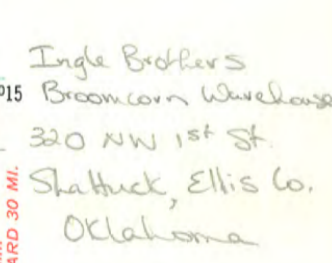 Ingle Brothers
Broomcorn Warehouse
320 NW 1st St.
Shattuck, Ellis Co.
Oklahoma
15
ARD 30 MI.